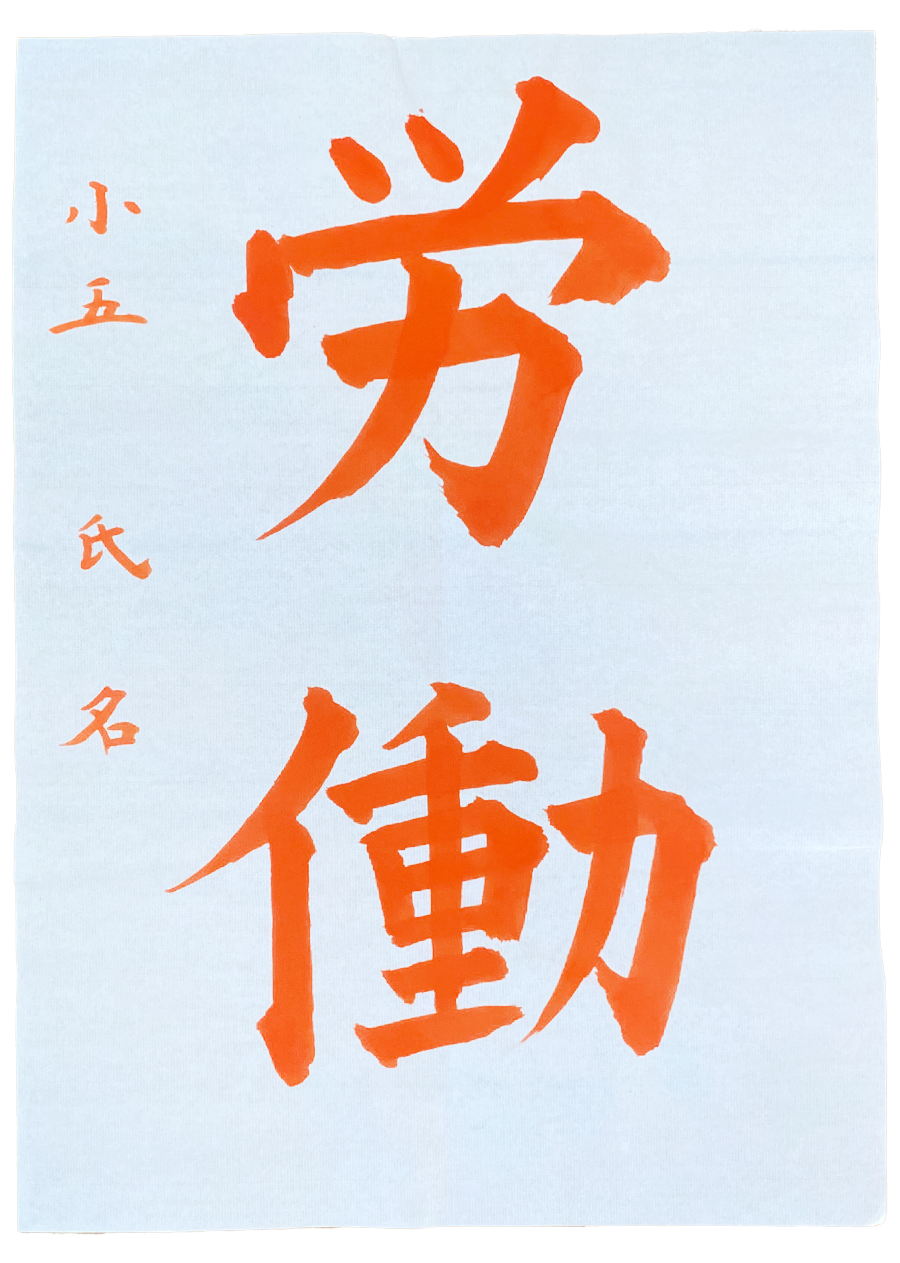 労働
小五 氏名